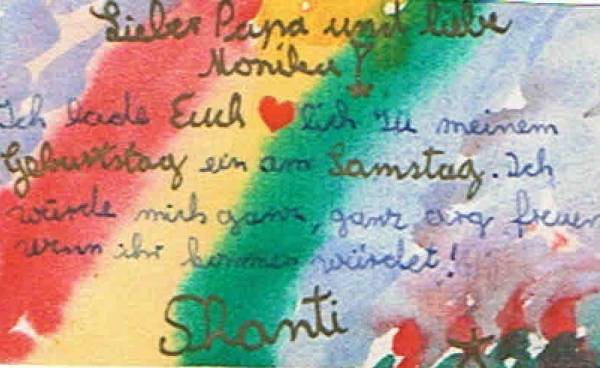 Lieber Papa und liebe
Monika!
Ich lade Euch ❤lich zu meinem
Geburtstag ein am Samstag. Ich
würde mich ganz, ganz arg freuen
wenn ihr kommen würdet!
Shanti